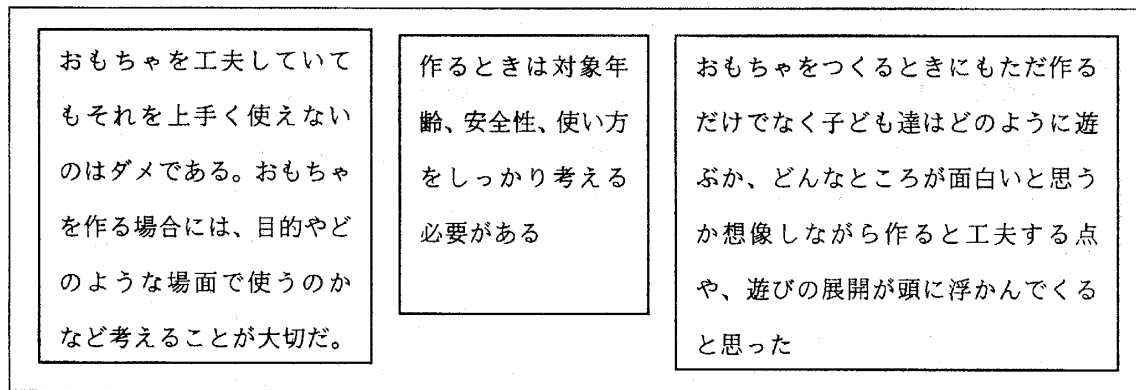 おもちゃを工夫していて
もそれを上手く使えない
のはダメである。おもちゃ
を作る場合には、目的やど
のような場面で使うのか
など考えることが大切だ。
作るときは対象年
齢、安全性、使い方
をしっかり考える
必要がある
おもちゃをつくるときにもただ作る
だけでなく子ども達はどのように遊
ぶか、どんなところが面白いと思う
か想像しながら作ると工夫する点
や、遊びの展開が頭に浮かんでくる
と思った